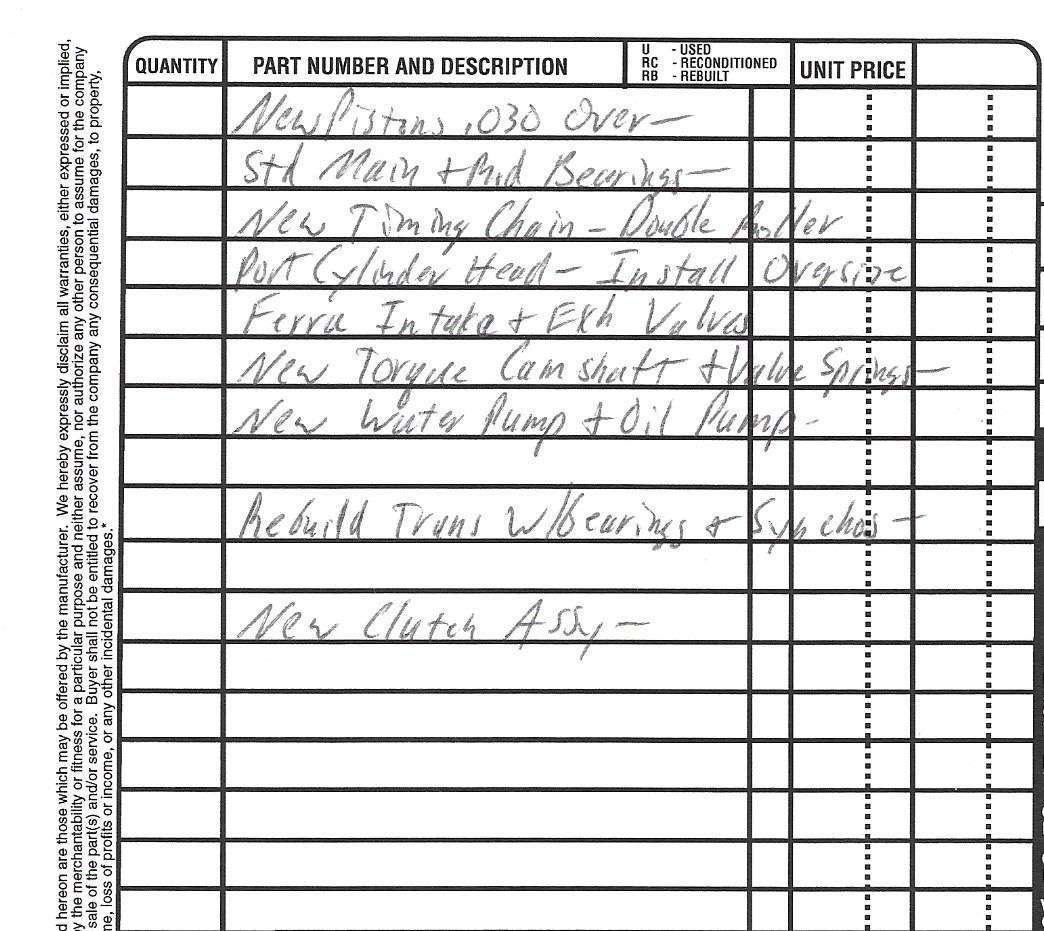 d hereon are those which may be offered by the manufacturer. We hereby expressly disclaim all warranties, either expressed or implied,
y the merchantability or fitness for a particular purpose and neither assume, nor authorize any other person to assume for the company
sale of the part(s) and/or service. Buyer shall not be entitled to recover from the company any consequential damages, to property,
me, loss of profits or income, or any other incidental damages.*
QUANTITY PART NUMBER AND DESCRIPTION U - USED RC - RECONDITIONED RB - REBUILT UNIT PRICE
New Pistons .030 Over —
Std Main + Rod Bearings —
New Timing Chain - Double Roller
Port Cylinder Head - Install Oversize
Ferra Intake + Exh Valves
New Torque Camshaft + Valve Springs —
New Water Pump + Oil Pump -
Rebuild Trans W/bearings + Synchos —
New Clutch Assy —